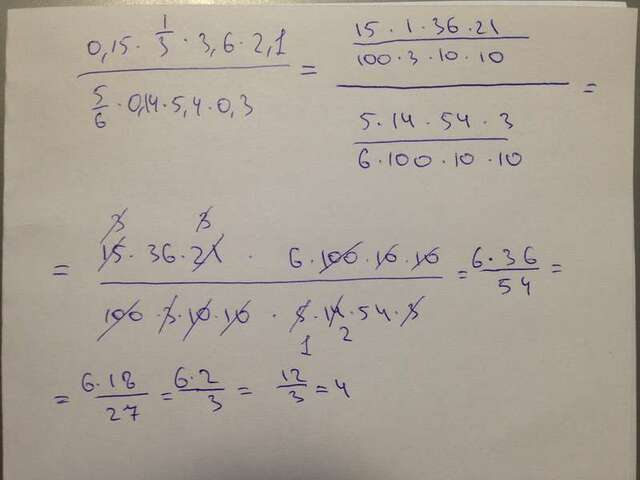 0,15 · 1/3 · 3,6 · 2,1 / 5/6 · 0,14 · 5,4 · 0,3 = 15 · 1 · 36 · 21 / 100 · 3 · 10 · 10 / 5 · 14 · 54 · 3 / 6 · 100 · 10 · 10 =
3 3
= 15 · 36 · 21 · 6 · 100 · 10 · 10 / 100 · 3 · 10 · 10 · 5 · 14 · 54 · 3 = 6 · 36 / 54 =
1 2
= 6 · 18 / 27 = 6 · 2 / 3 = 12 / 3 = 4